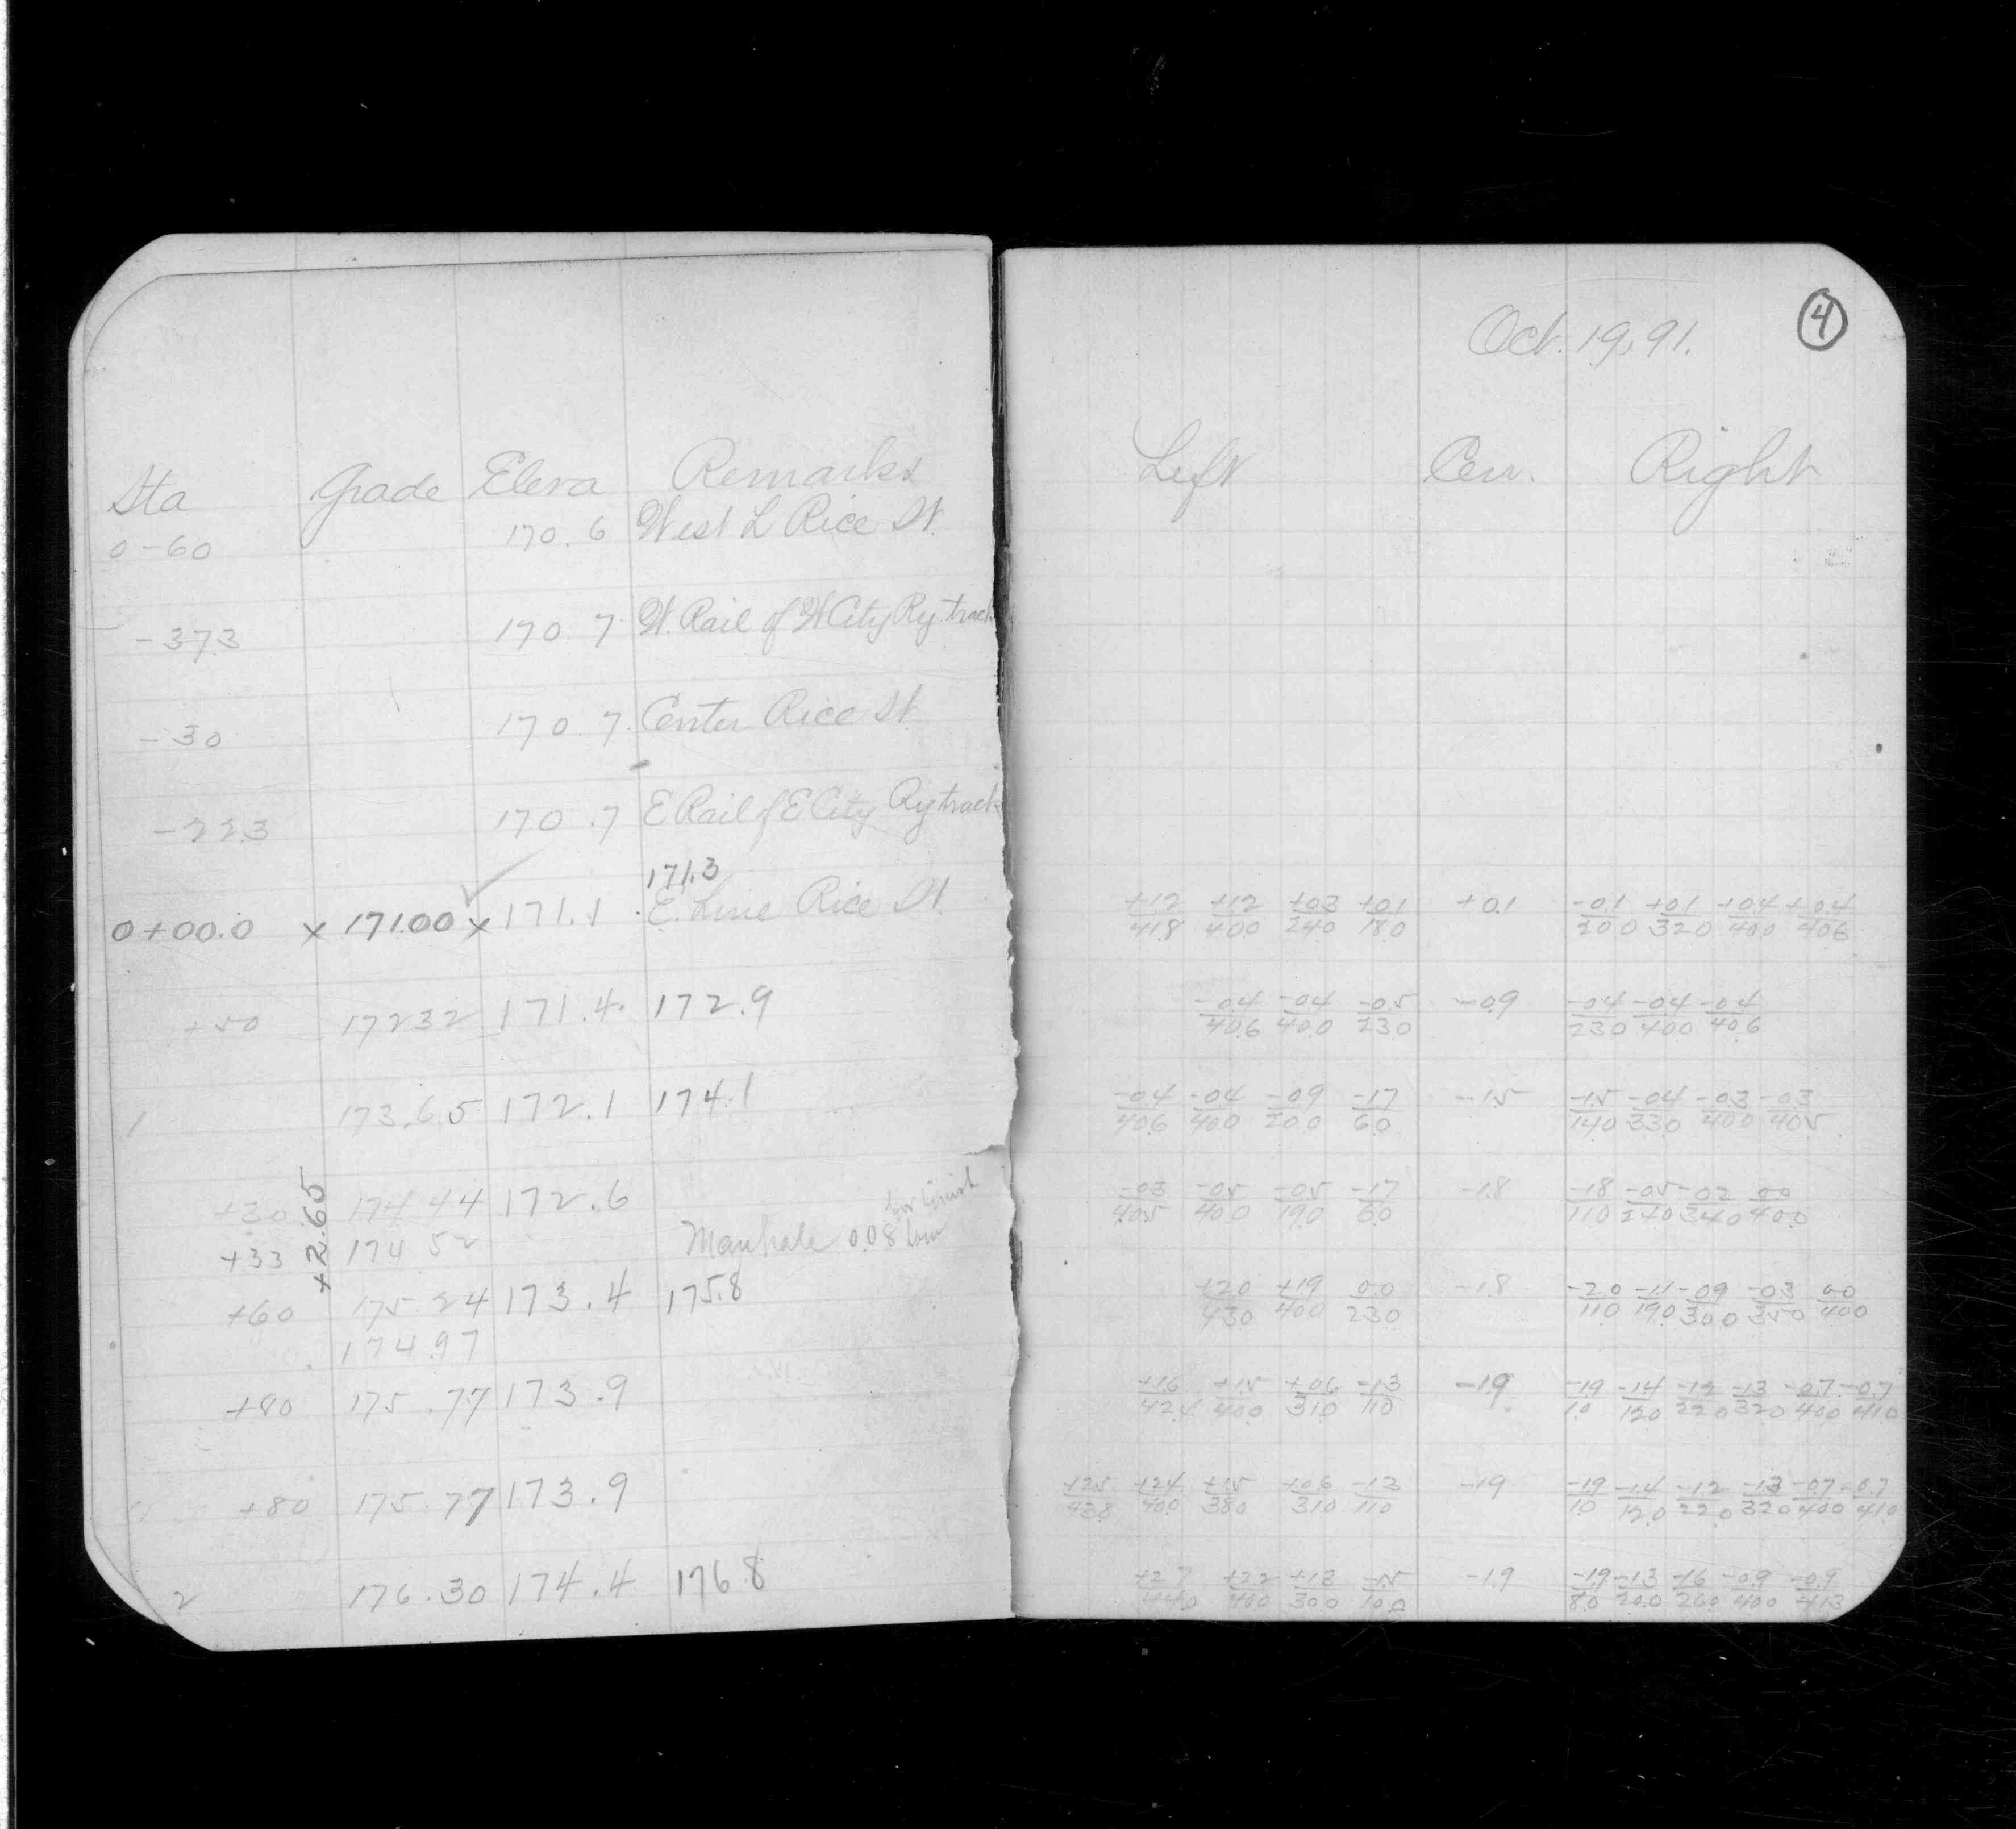 Oct. 19, 91. 4
Sta Grade Eleva Remarks Left Cen. Right
0-60 170.6 West L Rice St.
-37.3 170.7 W. Rail of W City Ry track
-30 170.7 Center Rice St
-22.3 170.7 E Rail of E City Ry track
171.3
0+00.0 x 171.00 x 171.1 E. Line Rice St. +1.2/41.8 +1.2/40.0 +0.3/24.0 +0.1/18.0 +0.1 -0.1/20.0 +0.1/32.0 +0.4/40.0 +0.4/40.6
+50 172.32 171.4 172.9 -0.4/40.6 -0.4/40.0 -0.5/23.0 -0.9 -0.4/23.0 -0.4/40.0 -0.4/40.6
1 173.65 172.1 174.1 -0.4/40.6 -0.4/40.0 -0.9/20.0 -1.7/6.0 -1.5 -1.5/14.0 -0.4/33.0 -0.3/40.0 -0.3/40.5
+2.65
+30 174.44 172.6 -0.3/40.5 -0.5/40.0 -0.5/19.0 -1.7/6.0 -1.8 -1.8/11.0 -0.5/24.0 -0.2/34.0 0.0/40.0
+33 174.52 Manhole 0.08 low
+60 175.24 173.4 175.8 +2.0/43.0 +1.9/40.0 0.0/23.0 -1.8 -2.0/11.0 -1.1/19.0 -0.9/30.0 -0.3/35.0 0.0/40.0
174.97
+80 175.77 173.9 +1.6/42.4 +1.5/40.0 +0.6/31.0 -1.3/11.0 -1.9 -1.9/1.0 -1.4/12.0 -1.2/22.0 -1.3/32.0 -0.7/40.0 -0.7/41.0
+80 175.77 173.9 +2.5/43.8 +2.4/40.0 +1.5/38.0 +0.6/31.0 -1.3/11.0 -1.9 -1.9/1.0 -1.4/12.0 -1.2/22.0 -1.3/32.0 -0.7/40.0 -0.7/41.0
2 176.30 174.4 176.8 +2.7/44.0 +2.2/40.0 +1.8/30.0 -1.5/10.0 -1.9 -1.9/8.0 -1.3/20.0 -1.6/26.0 -0.9/40.0 -0.9/41.3